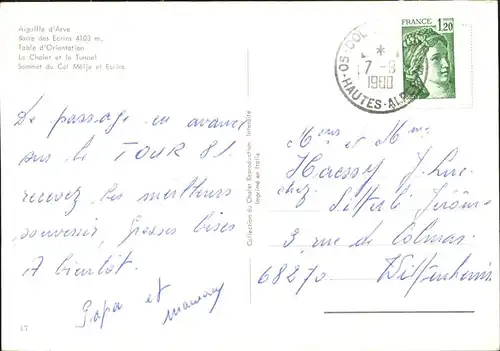 Aiguille d'Arve
Barre des Ecrins 4103 m.
Table d'Orientation
Le Chalet et le Tunnel
Sommet du Col Meije et Ecrins
FRANCE
1,20
05 · COL
7 - 8
1980
· HAUTES-ALPES
De passage en avance
sur le TOUR 81.
recevez les meilleurs
souvenirs, grosses bises
A bientôt.
Papa et
maman
Collection du Chalet Reproduction Interdite
Imprimé en Italie
Mrs et Mme
J. Luc
chez Jérôme
3, rue de Colmar
68270 Wittenheim
17